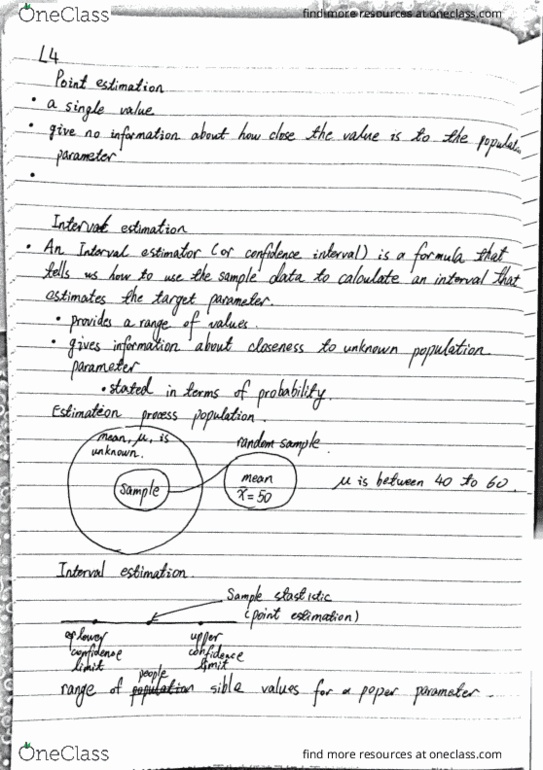 OneClass
find more resources at oneclass.com
L4
Point estimation
• a single value
• give no information about how close the value is to the
parameter
•
Interval estimation
• An Interval estimator (or confidence interval) is a formula that
tells us how to use the sample data to calculate an interval that
estimates the target parameter.
• provides a range of values.
• gives information about closeness to unknown population
parameter
• stated in terms of probability.
Estimation process population.
mean, μ, is
unknown.
random sample.
sample
mean
x̄ = 50
μ is between 40 to 60.
Interval estimation
Sample stastistic
(point estimation)
lower
confidence
limit
upper
confidence
limit
people
range of population sible values for a poper parameter.
OneClass
find more resources at oneclass.com